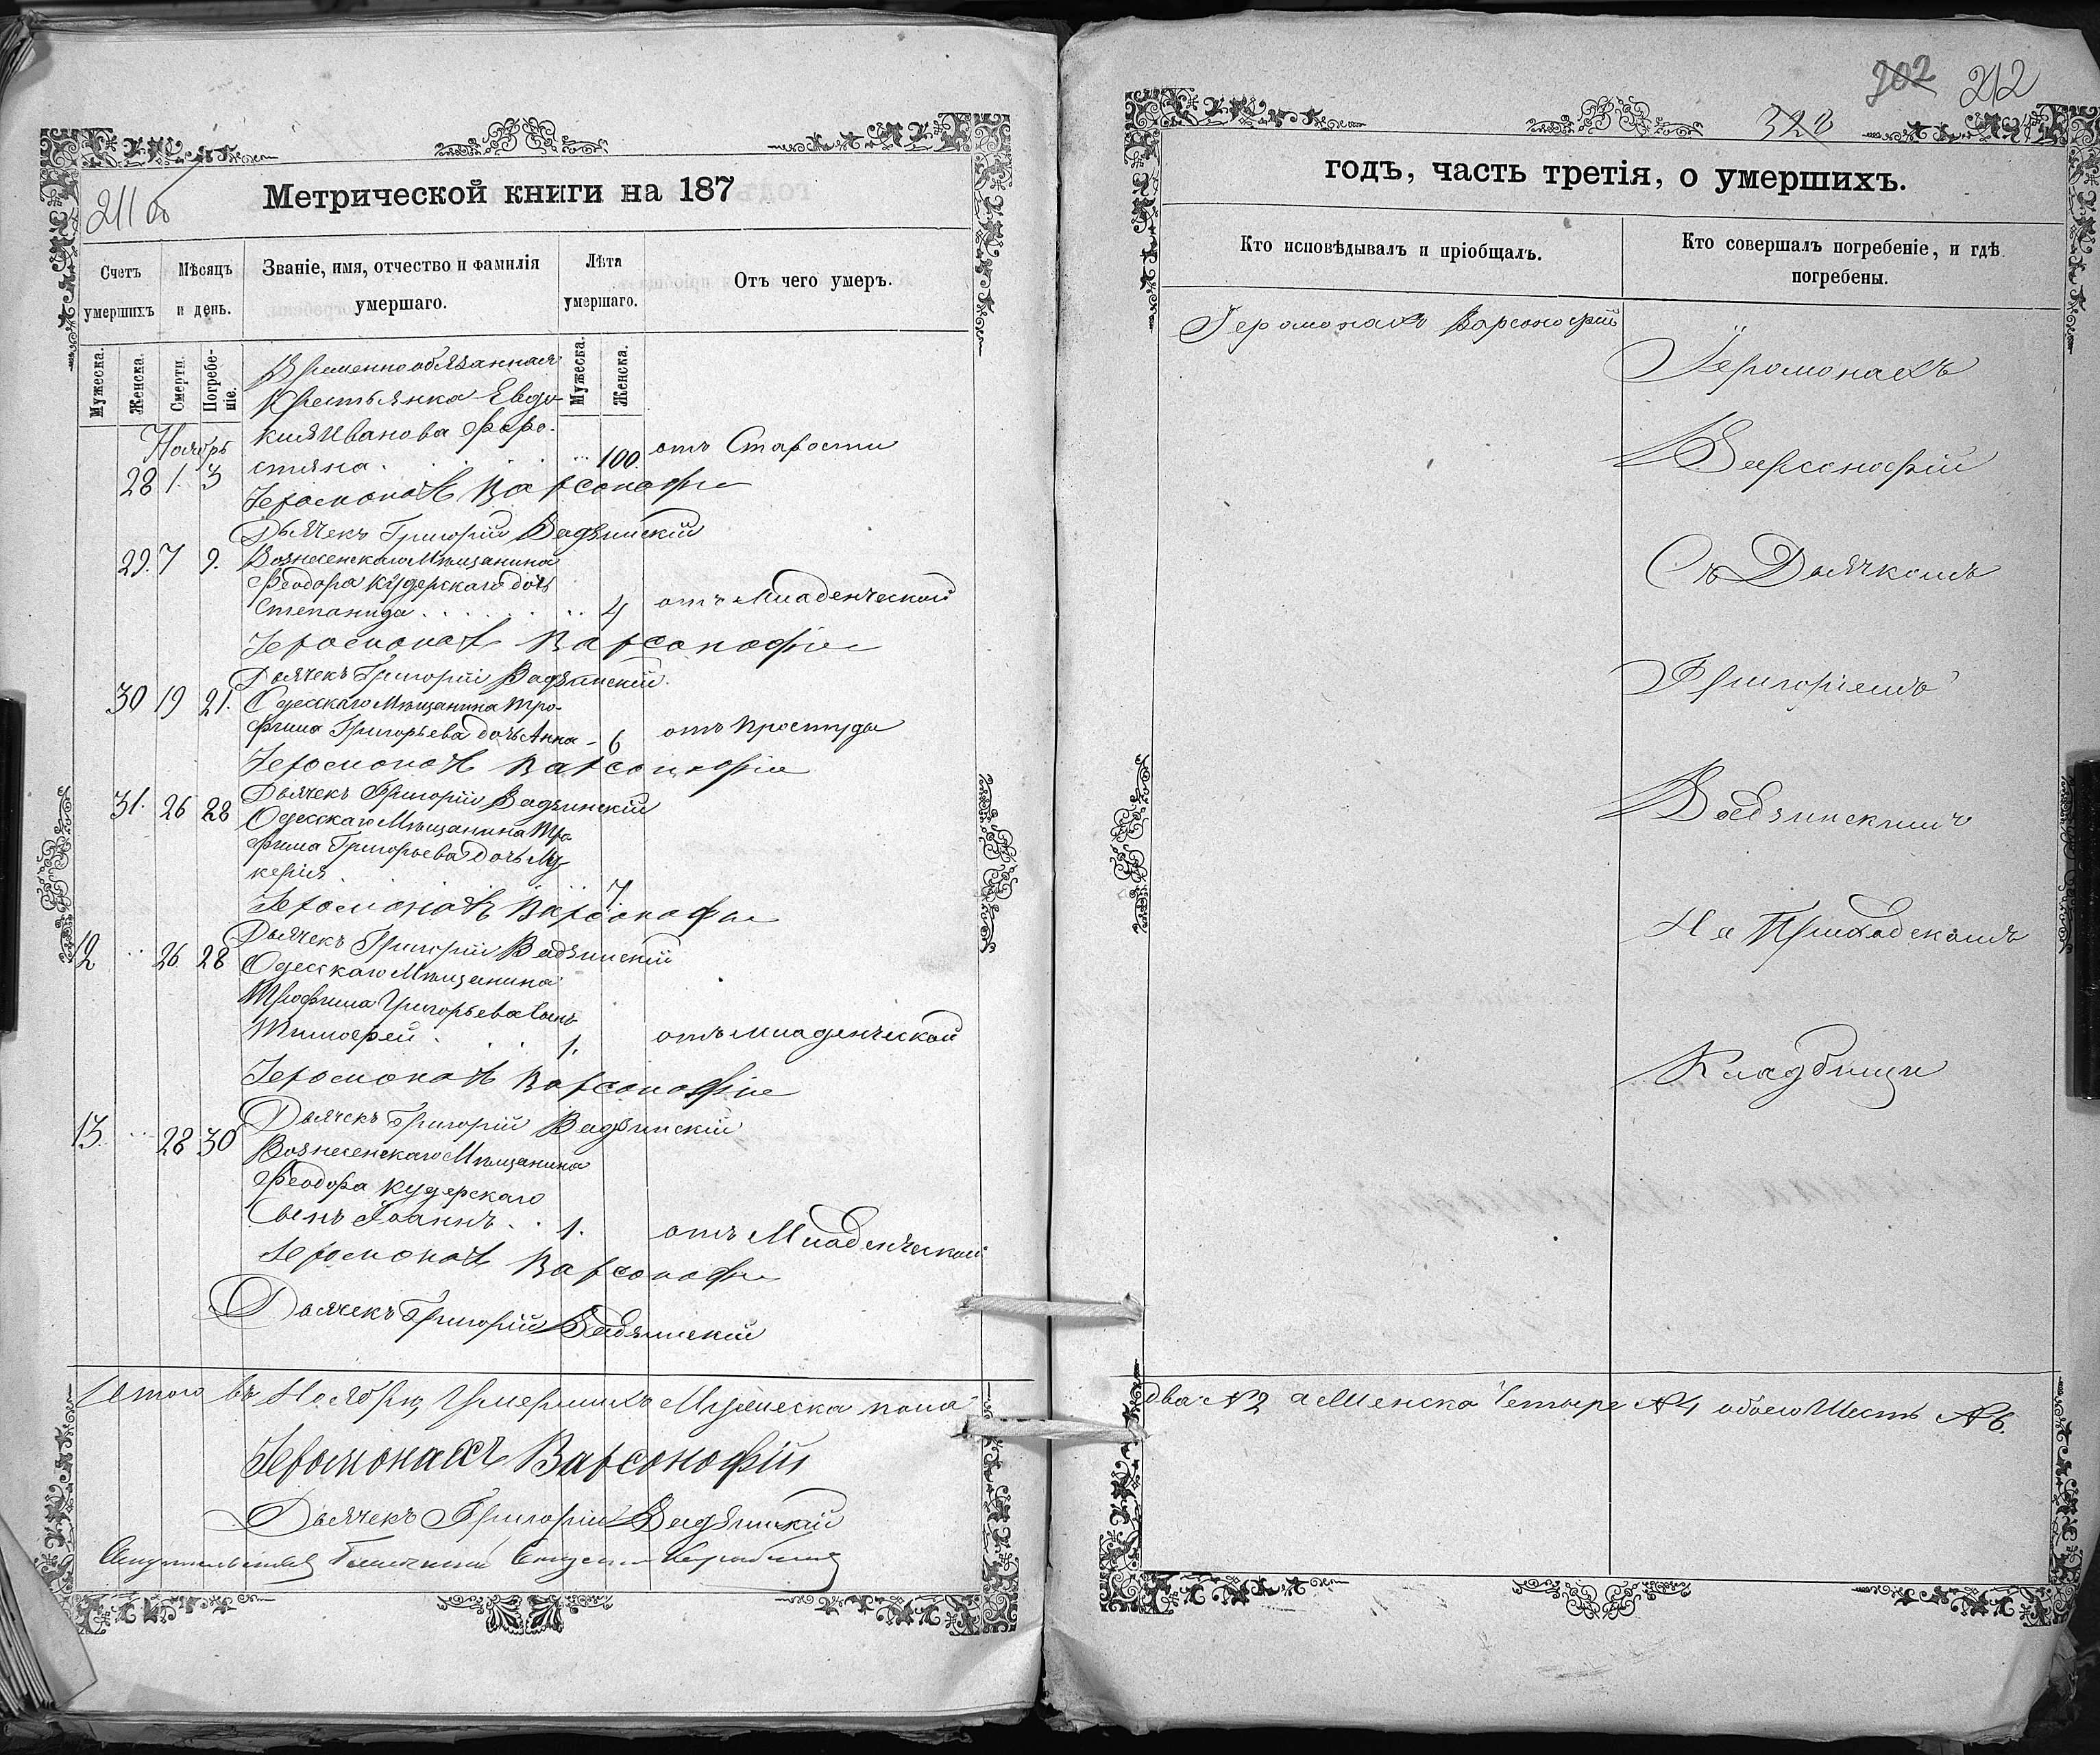 211 об
Метрической книги на 187
Счетъ умершихъ
Мѣсяцъ и день.
Званіе, имя, отчество и фамилія умершаго.
Лѣта умершаго.
Отъ чего умеръ.
Мужеска.
Женска.
Смерти.
Погребеніе.
Мужеска.
Женска.
Ноябрь
Временнообязанная
Крестьянка Евдо-
кия Иванова
28 1. 3 100. отъ Старости
Іеромонахъ Варсонофій
Дьячекъ Григорій Вадзинскій
29. 7 9. Вознесенскаго Мѣщанина
Феодора Кудерскаго дочь
Степанида 4 отъ младенческой
Іеромонахъ Варсонофій
Дьячекъ Григорій Вадзинскій.
30 19 21. Одесскаго Мѣщанина Тро-
фима Григорьева дочь Анна - 6 отъ простуды
Іеромонахъ Варсонофій
Дьячекъ Григорій Вадзинскій
31. 26 28 Одесскаго Мѣщанина Тро
фима Григорьева дочь Лу
керія 7.
Іеромонахъ Варсонофій
Дьячекъ Григорій Вадзинскій
12 26 28 Одесскаго Мѣщанина
Трофима Григорьева сынъ
Тимофей 1. отъ младенческой
Іеромонахъ Варсонофій
Дьячекъ Григорій Вадзинскій
13. 28 30 Вознесенскаго Мѣщанина
Феодора Кудерскаго
сынъ Іоаннъ 1. отъ Младенческой
Іеромонахъ Варсонофій
Дьячекъ Григорій Вадзинскій
Итого въ Ноябрѣ Умершихъ Мужеска пола
Іеромонахъ Варсонофій
Дьячекъ Григорій Вадзинскій
202 212
328
годъ, часть третія, о умершихъ.
Кто исповѣдывалъ и пріобщалъ.
Кто совершалъ погребеніе, и гдѣ погребены.
Іеромонахъ Варсонофій
Іеромонахъ
Варсонофій
Съ Дьячкомъ
Григоріемъ
Вадзинскимъ
На Приходскомъ
Кладбищи
два № 2 а Женска Четыре № 4 обоего Шесть № 6.